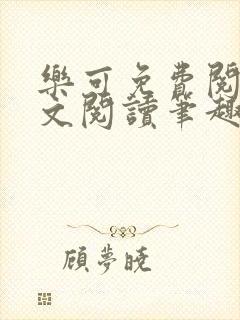 樂可免費閱
文閱讀筆趣
顧夢曉